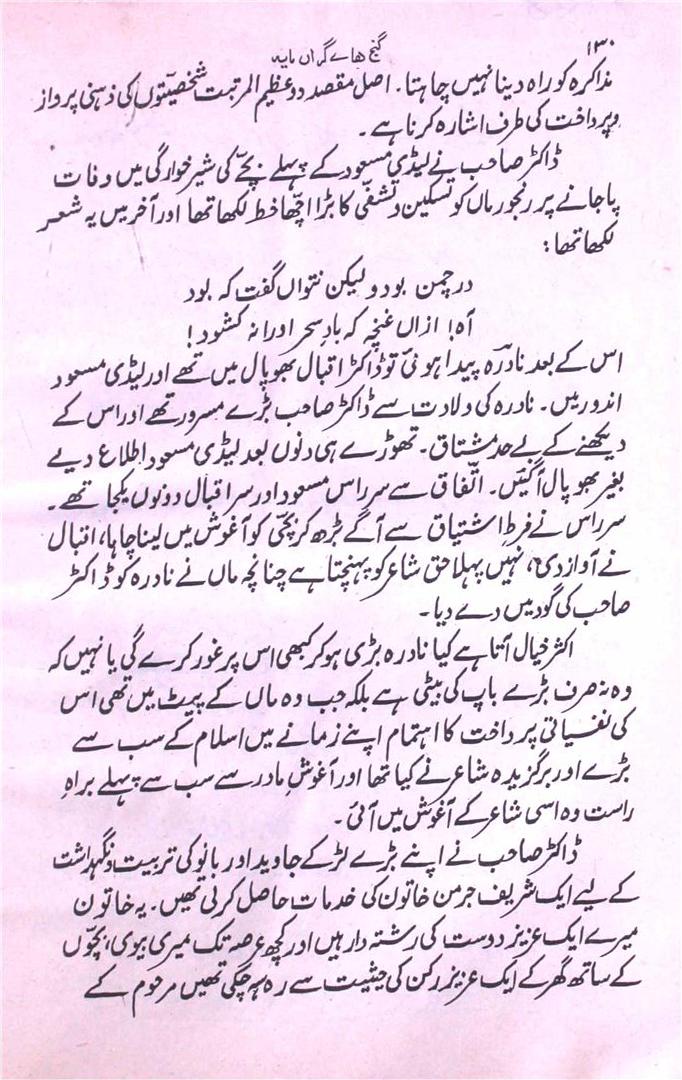 ۱۳۰
گنج ھاے گراں مایہ
مذاکرہ کو راہ دینا نہیں چاہتا۔ اصل مقصد دو عظیم المرتبت شخصیتوں کی ذہنی پرواز
و پرداخت کی طرف اشارہ کرنا ہے۔
ڈاکٹر صاحب نے لیڈی مسعود کے پہلے بچّے کی شیر خوارگی میں وفات
پا جانے پر رنجور ماں کو تسکین و تشفّی کا بڑا اچھّا خط لکھا تھا اور آخر میں یہ شعر
لکھا تھا:
در چمن بود و لیکن نتواں گفت کہ بود
آہ! ازاں غنچہ کہ بادِ سحر اورا نہ کشود!
اس کے بعد نادرہ پیدا ہوئی تو ڈاکٹر اقبال بھوپال میں تھے اور لیڈی مسعود
اندور میں۔ نادرہ کی ولادت سے ڈاکٹر صاحب بڑے مسرور تھے اور اس کے
دیکھنے کے بے حد مشتاق۔ تھوڑے ہی دنوں بعد لیڈی مسعود اطلاع دیے
بغیر بھوپال آگئیں۔ اتّفاق سے سرراس مسعود اور سر اقبال دونوں یکجا تھے۔
سرراس نے فرط اشتیاق سے آگے بڑھ کر بچّی کو آغوش میں لینا چاہا، اقبال
نے آواز دی، نہیں پہلا حق شاعر کو پہنچتا ہے چنانچہ ماں نے نادرہ کو ڈاکٹر
صاحب کی گود میں دے دیا۔
اکثر خیال آتا ہے کیا نادرہ بڑی ہو کر کبھی اس پر غور کرے گی یا نہیں کہ
وہ نہ صرف بڑے باپ کی بیٹی ہے بلکہ جب وہ ماں کے پیٹ میں تھی اس
کی نفسیاتی پرداخت کا اہتمام اپنے زمانے میں اسلام کے سب سے
بڑے اور برگزیدہ شاعر نے کیا تھا اور آغوشِ مادر سے سب سے پہلے براہِ
راست وہ اسی شاعر کے آغوش میں آئی۔
ڈاکٹر صاحب نے اپنے بڑے لڑکے جاوید اور بانو کی تربیت و نگہداشت
کے لیے ایک شریف جرمن خاتون کی خدمات حاصل کرلی تھیں۔ یہ خاتون
میرے ایک عزیز دوست کی رشتہ دار ہیں اور کچھ عرصہ تک میری بیوی، بچّوں
کے ساتھ گھر کے ایک عزیز رکن کی حیثیت سے رہ چکی تھیں مرحوم کے